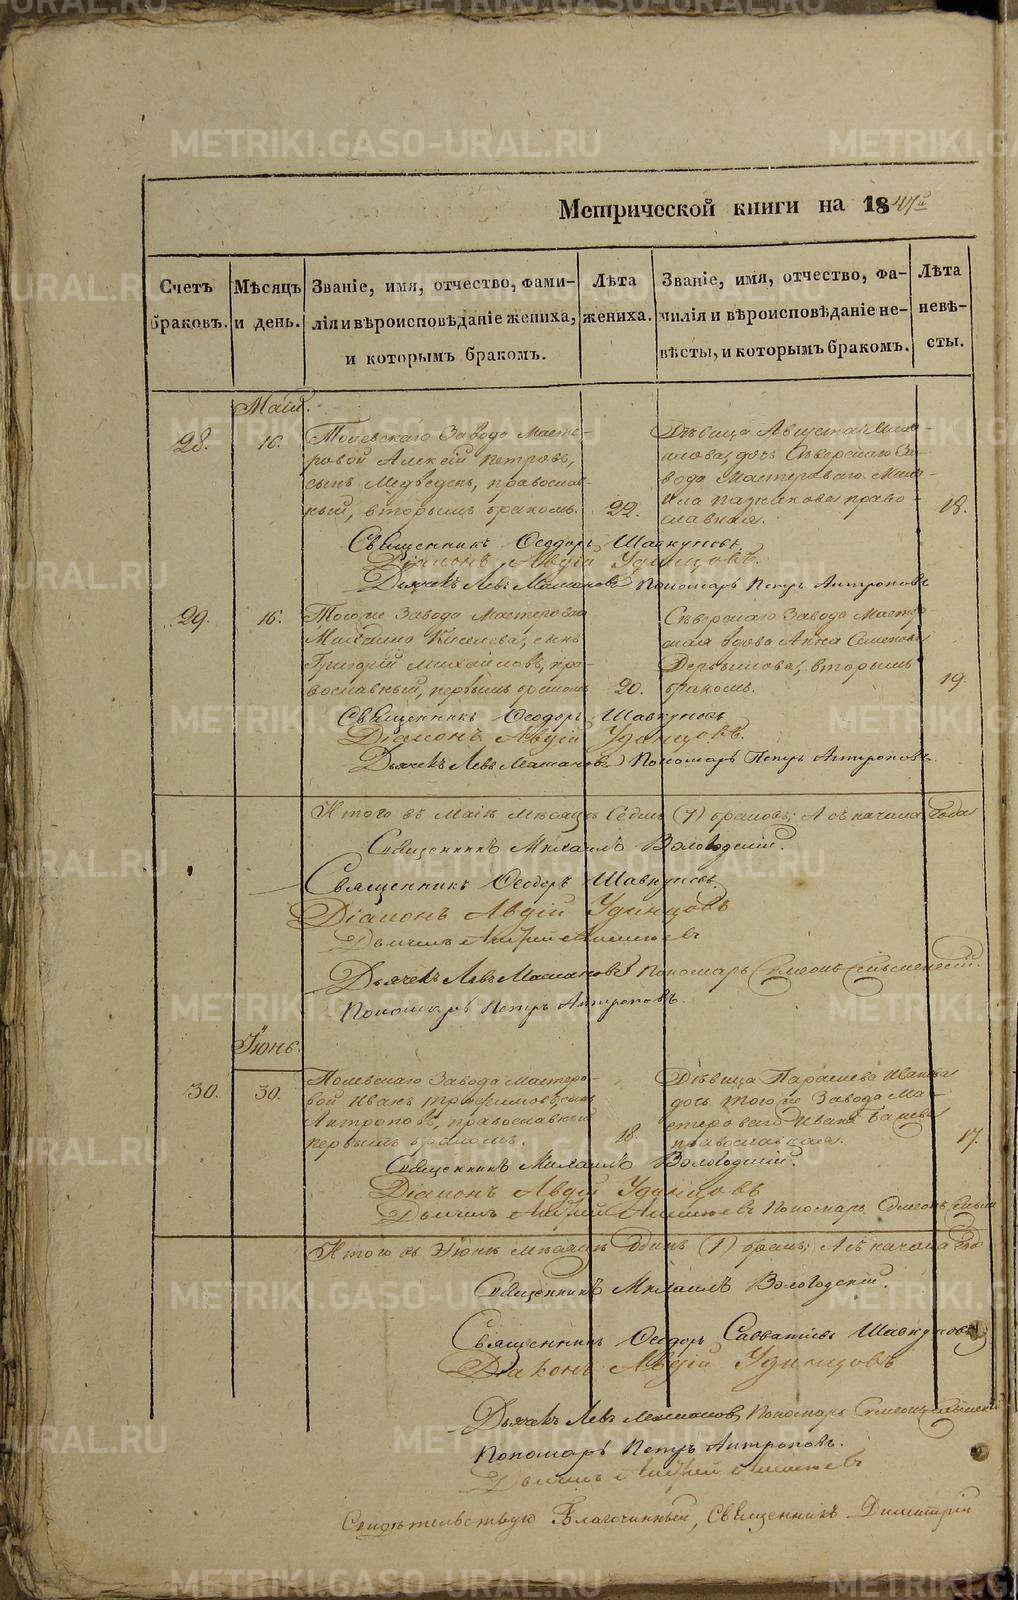 Метрической книги на 1847й
Счетъ браковъ.
Мѣсяцъ и день.
Званіе, имя, отчество, фами-
лія и вѣроисповѣданіе жениха,
и которымъ бракомъ.
Лѣта
жениха.
Званіе, имя, отчество, фа-
милія и вѣроисповѣданіе не-
вѣсты, и которымъ бракомъ.
Лѣта
невѣ-
сты.
Маій.
28.
16.
Полевскаго Завода Масте-
ровой Алексій Петровъ,
сынъ Медведевъ, православ-
ный, вторымъ бракомъ.
22.
Дѣвица Августа Михай-
лова, дочь Сѣверскаго За-
вода Мастероваго Миха-
ила право-
славная.
18.
Священникъ Феодоръ Шавкуновъ
Діаконъ Авдій Удинцовъ.
Дьячекъ Левъ Пономарь Петръ Антроповъ
29.
16.
Того же Завода Мастероваго
Михаила Киселева, сынъ
Григорій Михайловъ, пра-
вославный, первымъ бракомъ
20.
Сѣверскаго Завода Мастер
ская вдова Анна Семенова
вторымъ
бракомъ.
19.
Священникъ Феодоръ Шавкуновъ
Діаконъ Авдій Удинцовъ.
Дьячекъ Левъ Пономарь Петръ Антроповъ.
Итого въ Маіѣ мѣсяцѣ Седмь (7) браковъ; А съ начала Года
Священникъ Михаилъ Вологодскій.
Священникъ Феодоръ Шавкуновъ.
Діаконъ Авдій Удинцовъ
Дьячекъ Андрей
Дьячекъ Левъ Пономарь Симеонъ
Пономарь Петръ Антроповъ.
Іюнь.
30.
30.
Полевскаго Завода Мастеро-
вой Иванъ Трофимовъ, сынъ
Антроповъ, православный
первымъ бракомъ.
18.
Дѣвица Параскева Иванова
дочь того же Завода Ма-
стероваго Ивана
православная.
17.
Священникъ Михаилъ Вологодскій.
Діаконъ Авдій Удинцовъ
Дьячекъ Андрей Пономарь Симеонъ
Итого въ Іюнѣ мѣсяцѣ Одинъ (1) бракъ; А съ начала Года
Священникъ Михаилъ Вологодскій.
Священникъ Феодоръ Савватіевъ Шавкуновъ
Діаконъ Авдій Удинцовъ
Дьячекъ Левъ Пономарь Симеонъ
Пономарь Петръ Антроповъ.
Дьячекъ Андрей
Свидѣтельствую Благочинный, Священникъ Димитрій
METRIKI.GASO-URAL.RU